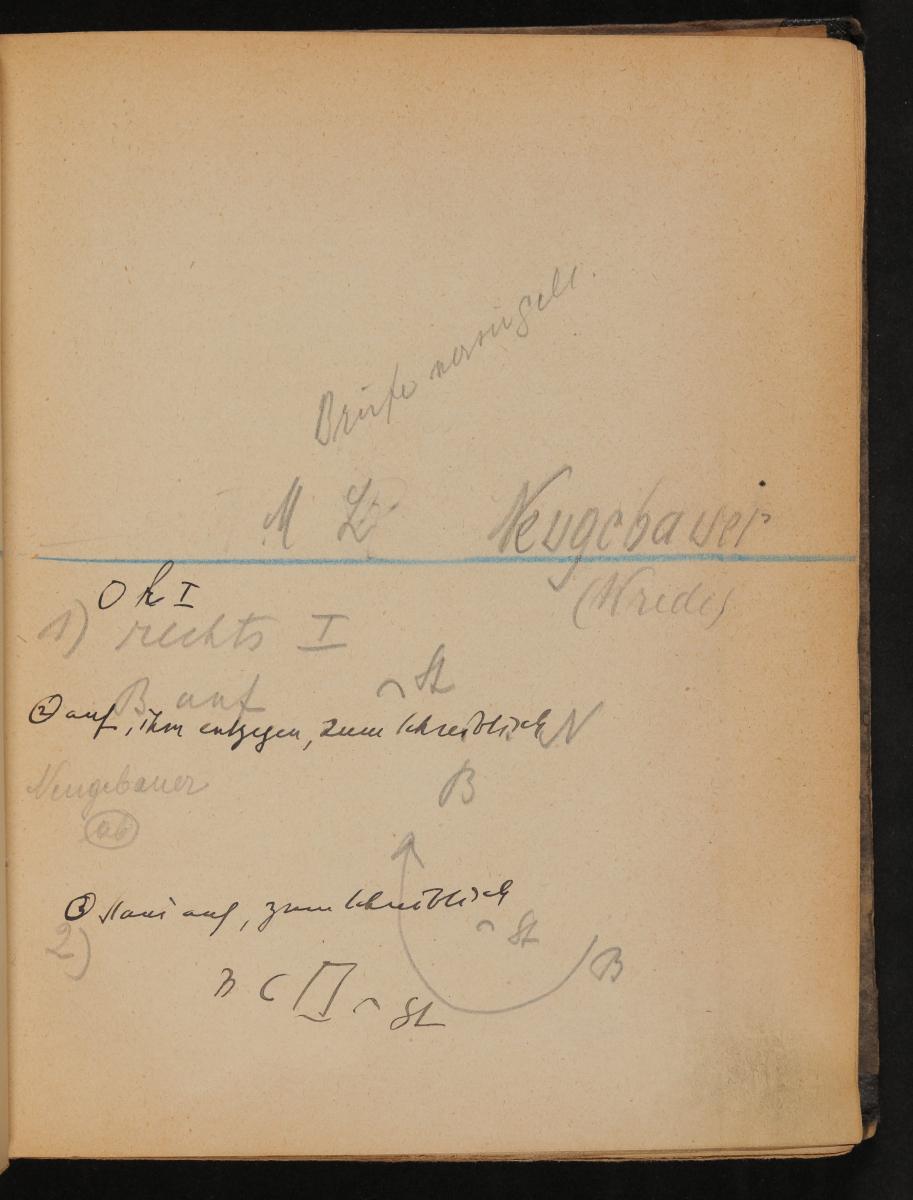 Briefe versiegelt.
M Neugebauer
(Wrede)
1) rechts I
B auf St
② auf, ihm entgegen, zum Schreibtisch
N
B
Neugebauer
ab
③ steht auf, zum Schreibtisch
2)
St
B
B C St